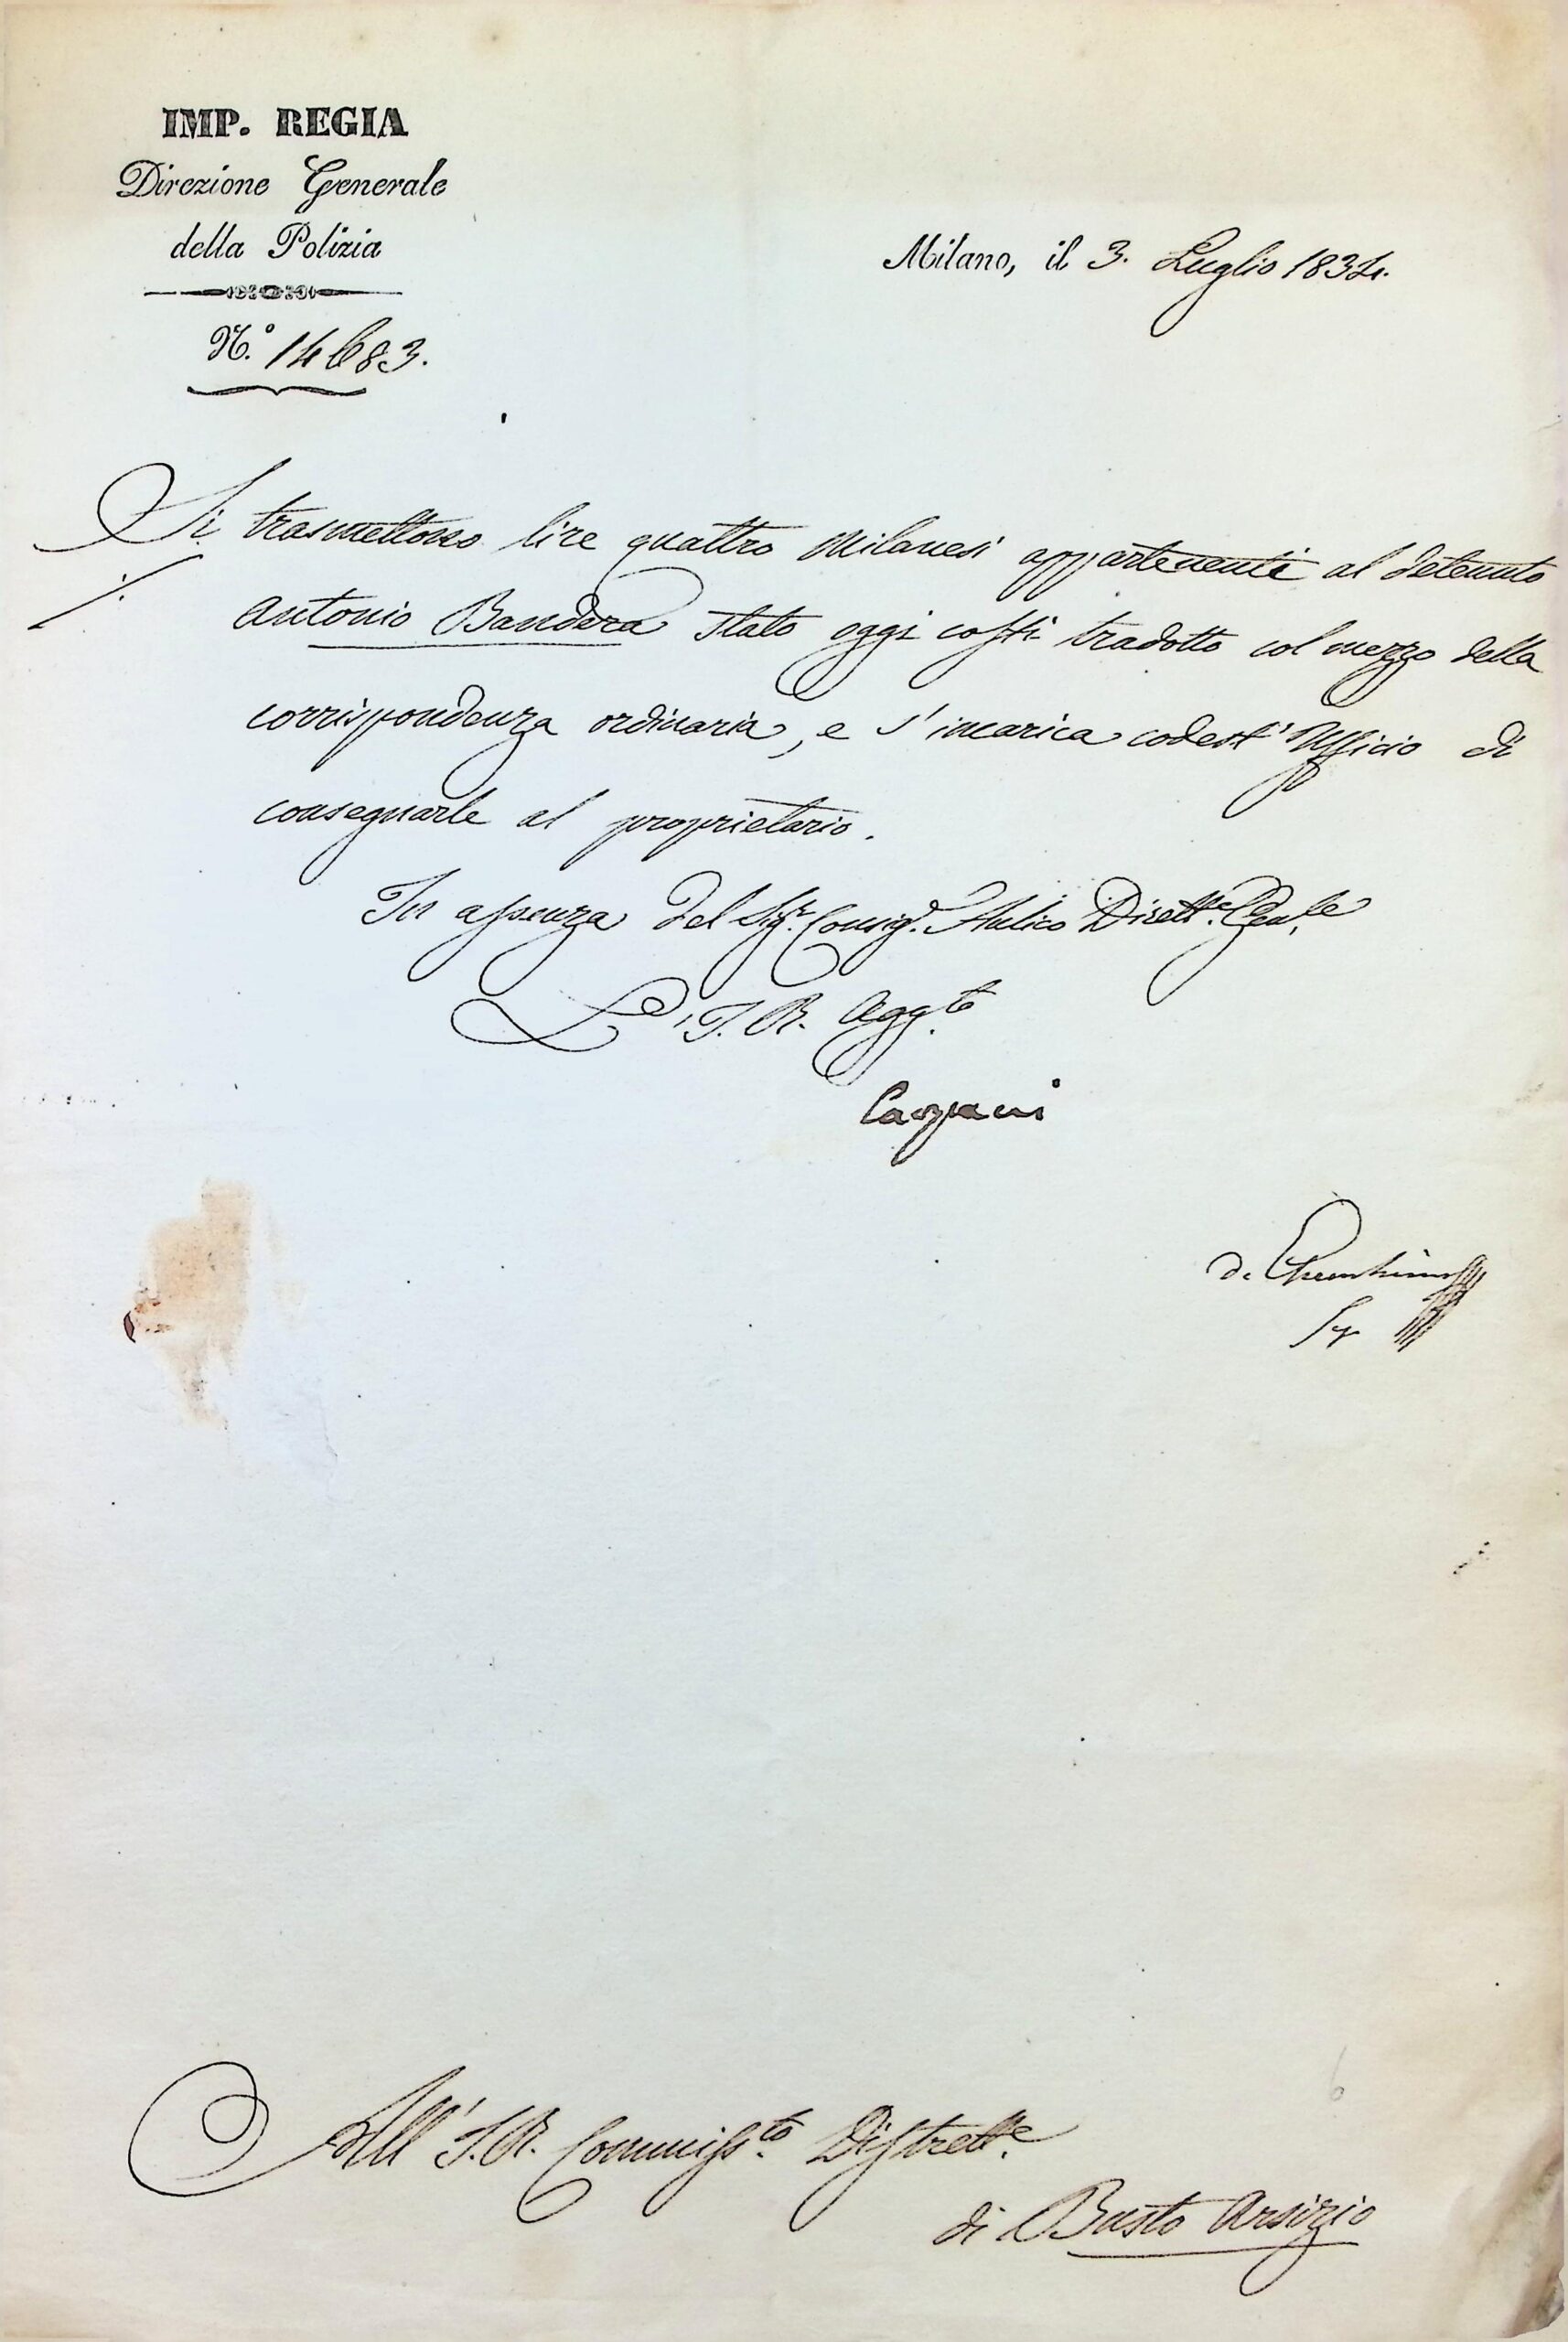 IMP. REGIA
Direzione Generale
della Polizia
Milano, il 3. Luglio 1834.
N.° 14683.
Si trasmettono lire quattro Milanesi appartenenti al detenuto
Antonio Bandera stato oggi costì tradotto col mezzo della
corrispondenza ordinaria, e s'incarica codest'Ufficio di
consegnarle al proprietario.
In assenza del Sigr. Consigr. Aulico Dirette. Genle.
L'I. R. Aggto.
Caspani
All'I. R. Commissto. Distrette.
di Busto Arsizio